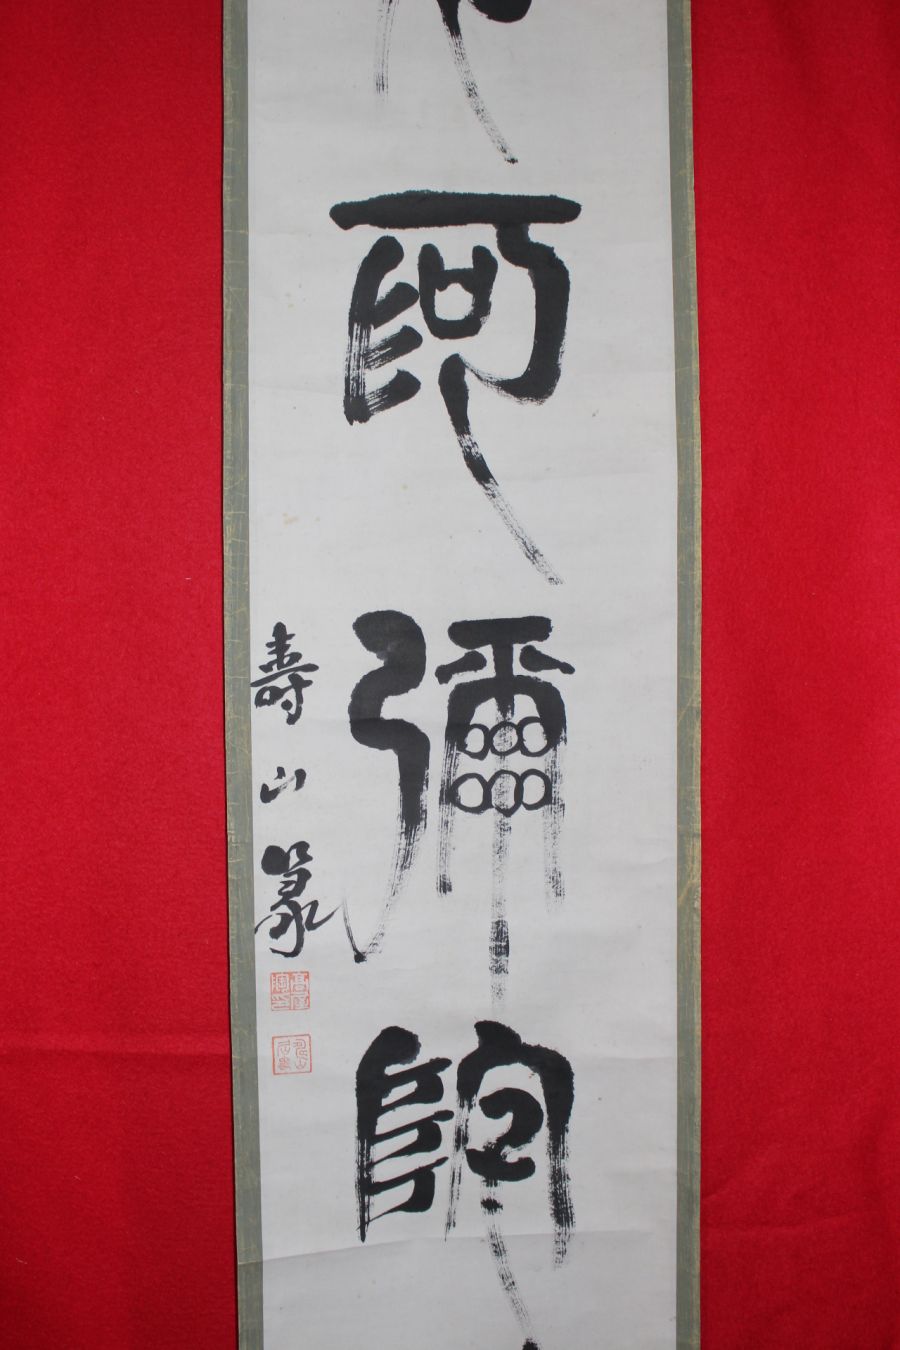 阿彌陀
壽山篆